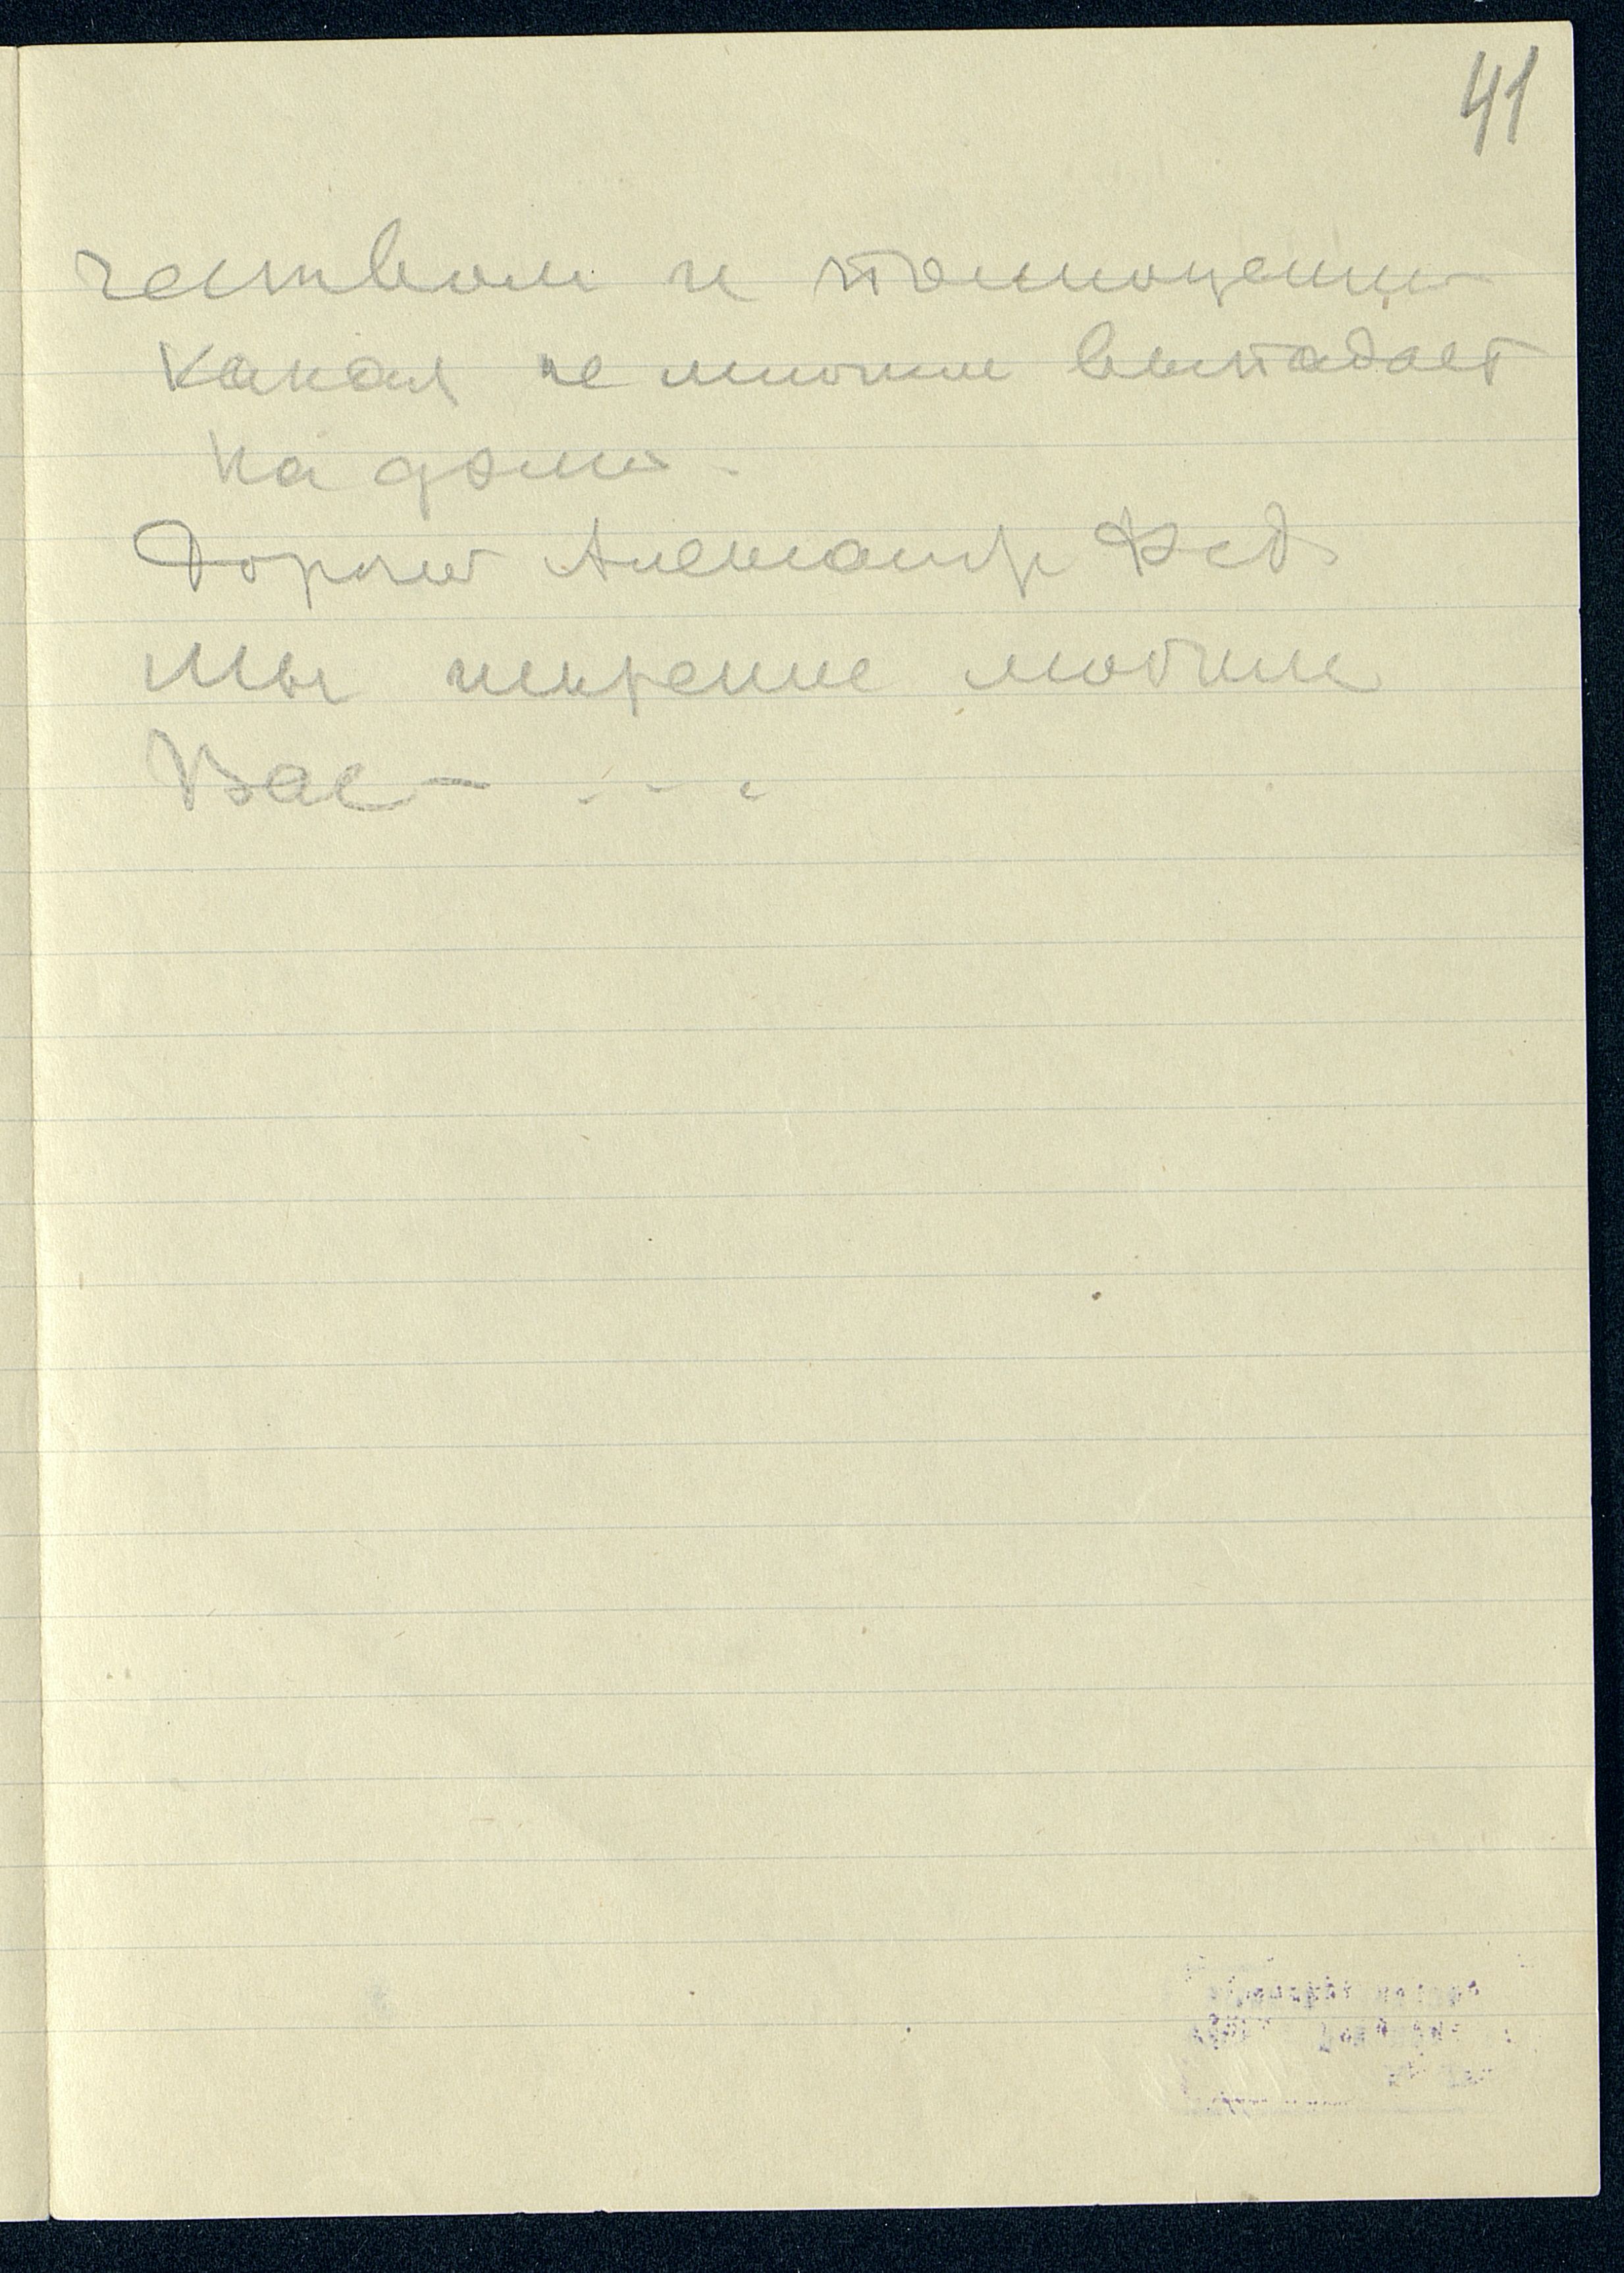 41
чеством и полноценно
какая не многим выпадает
на долю.
Дорогой Александр Фед.
Мы искренне любим
Вас — . . .